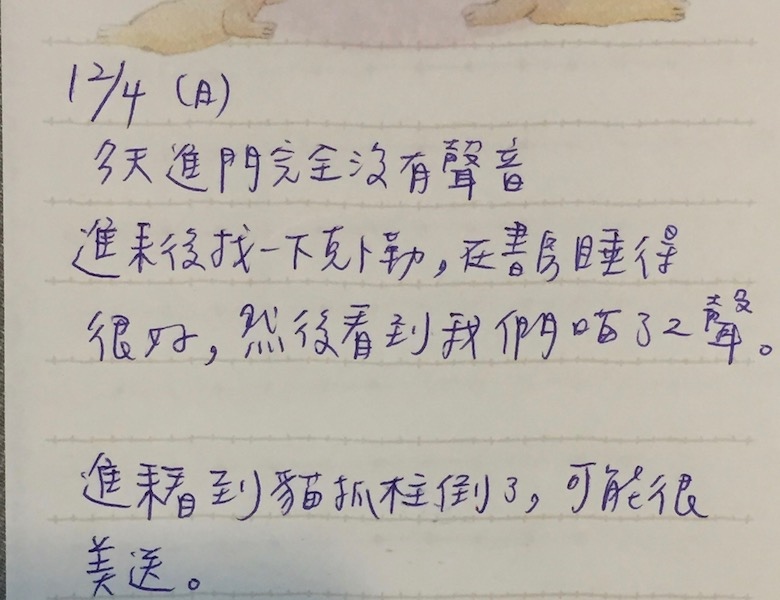 12/4 (日)
今天進門完全沒有聲音
進來後找一下克卜勒,在書房睡得
很好,然後看到我們喵了2聲。
進來看到貓抓柱倒了,可能很
美送。